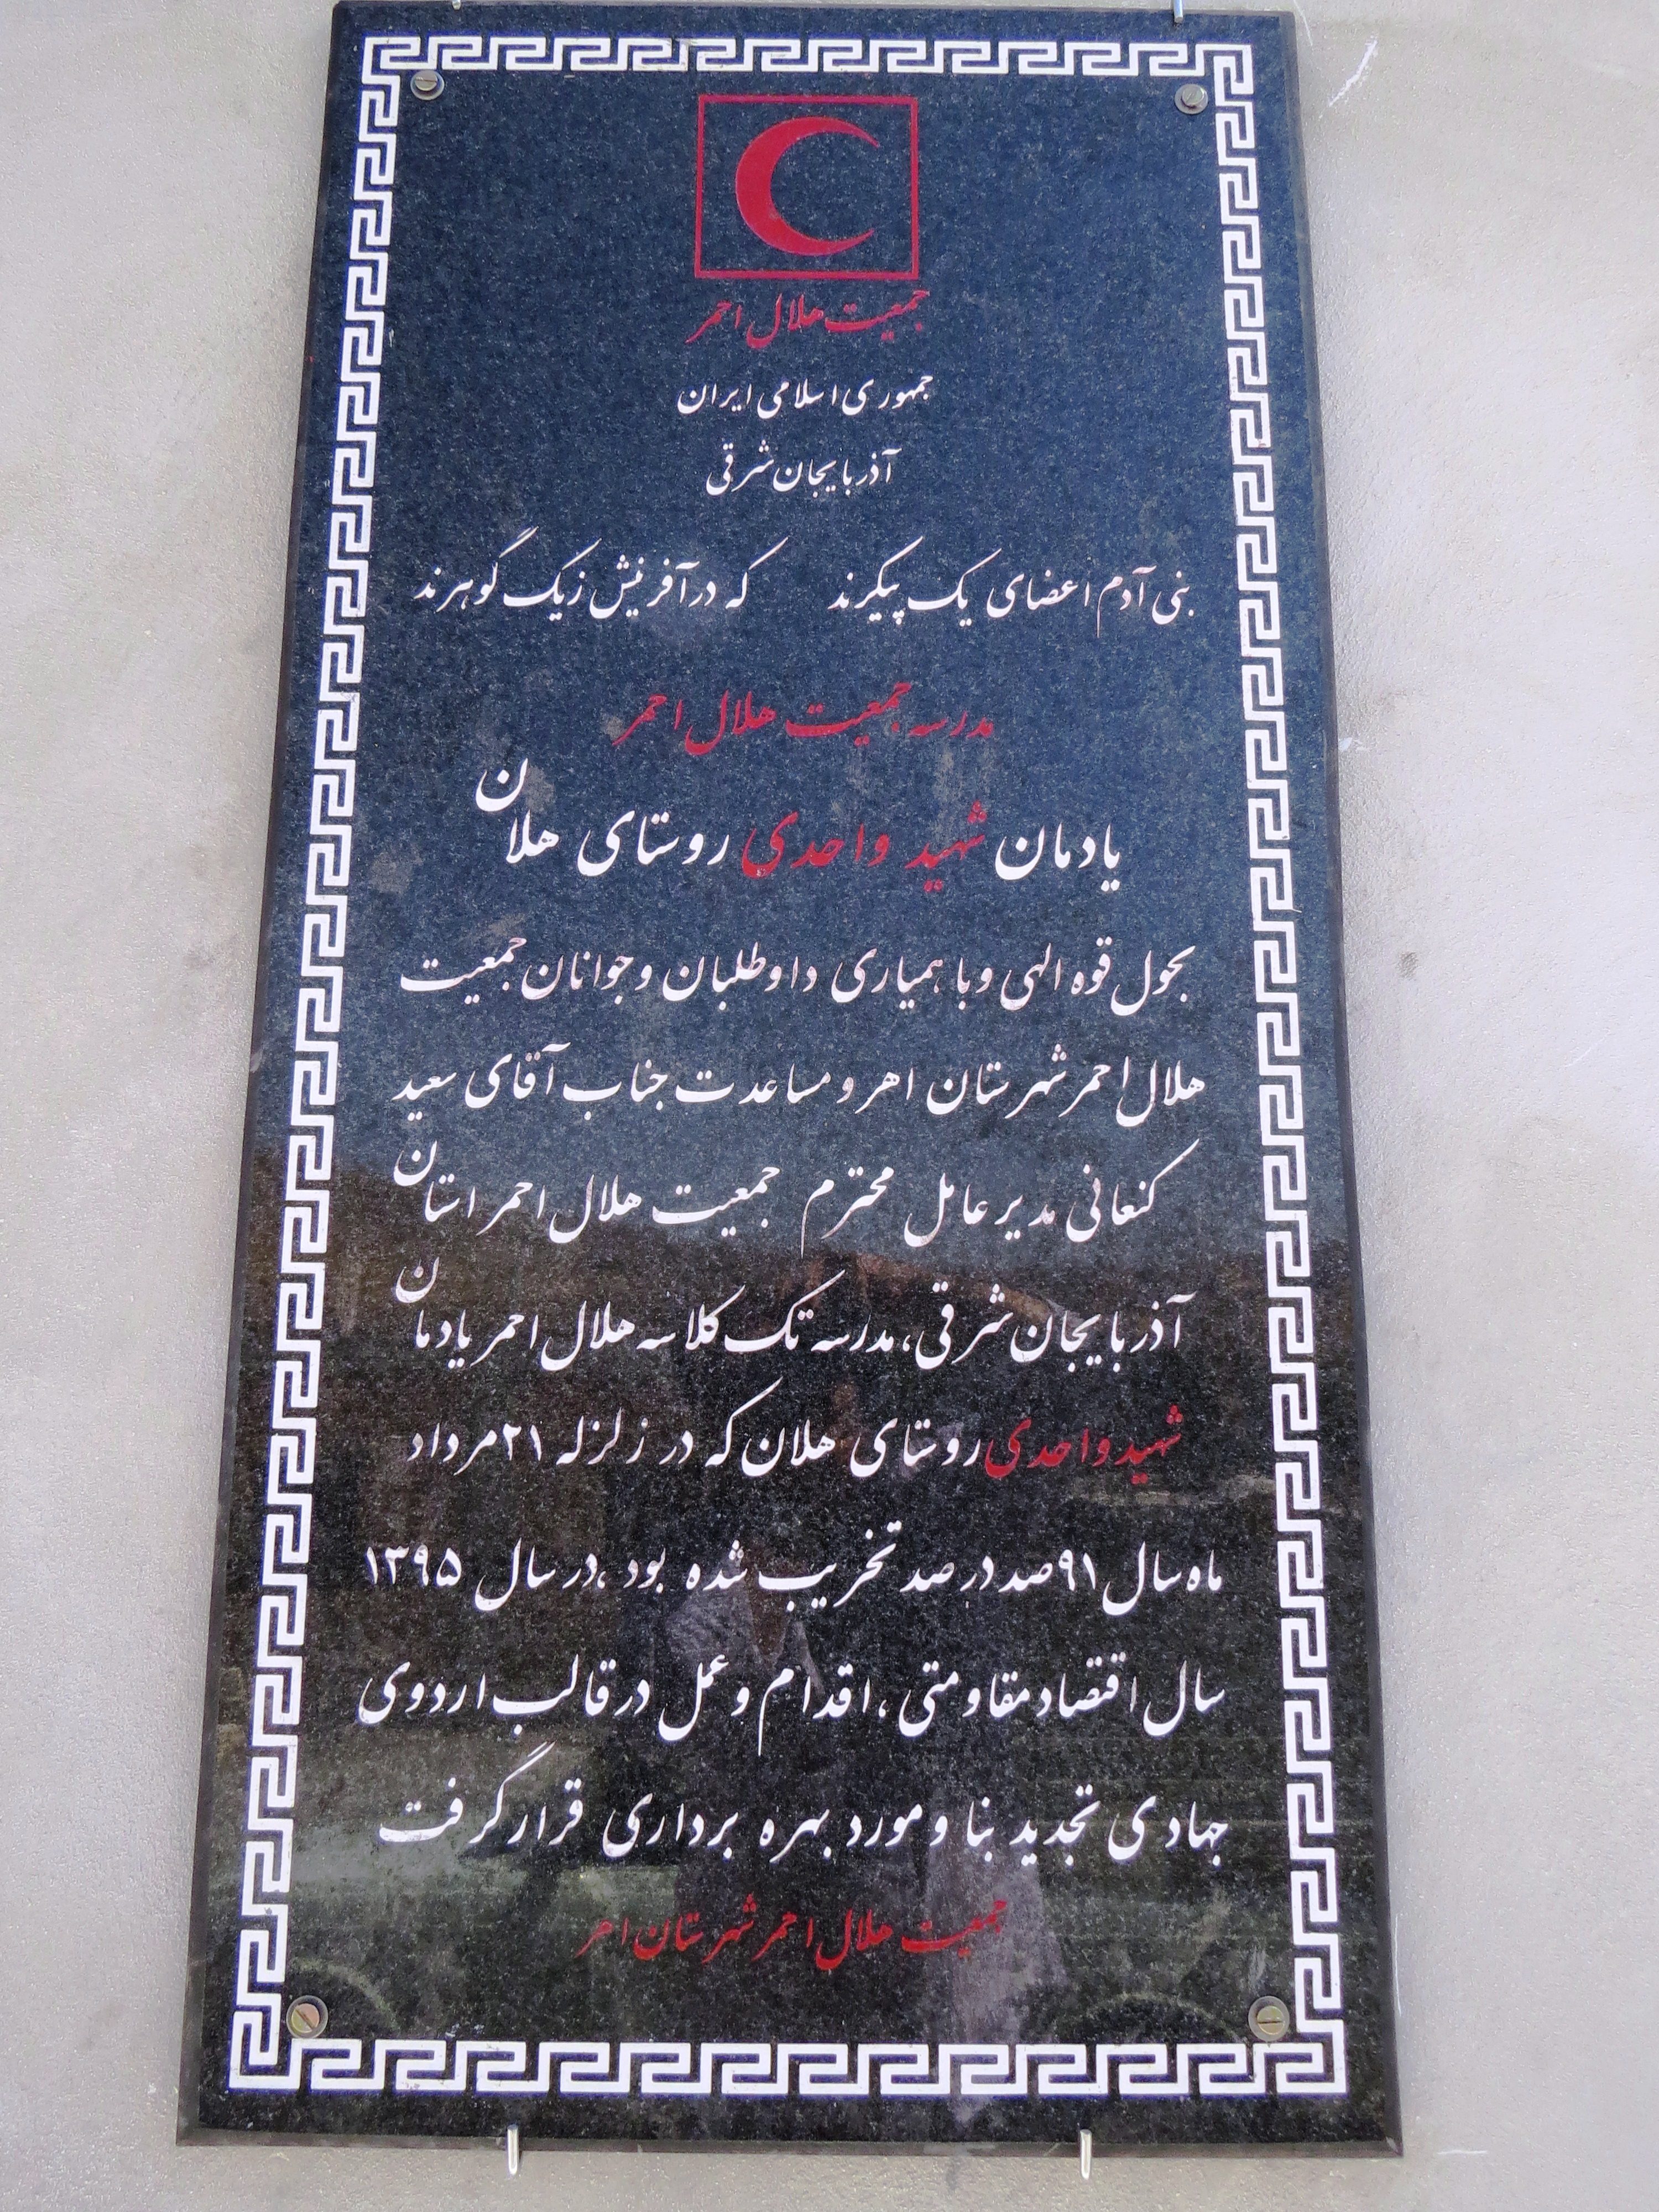 جمعیت هلال احمر
جمهوری اسلامی ایران
آذربایجان شرقی
بنی آدم اعضای یک پیکرند که در آفرینش ز یک گوهرند
مدرسه جمعیت هلال احمر
یادمان شهید واحدی روستای هلان
بحول قوه الهی و با همیاری داوطلبان و جوانان جمعیت
هلال احمر شهرستان اهر و مساعدت جناب آقای سعید
کنعانی مدیر عامل محترم جمعیت هلال احمر استان
آذربایجان شرقی، مدرسه تک کلاسه هلال احمر یادمان
شهید واحدی روستای هلان که در زلزله ۲۱ مرداد
ماه سال ۹۱ صد در صد تخریب شده بود، در سال ۱۳۹۵
سال اقتصاد مقاومتی، اقدام و عمل در قالب اردوی
جهادی تجدید بنا و مورد بهره برداری قرار گرفت
جمعیت هلال احمر شهرستان اهر